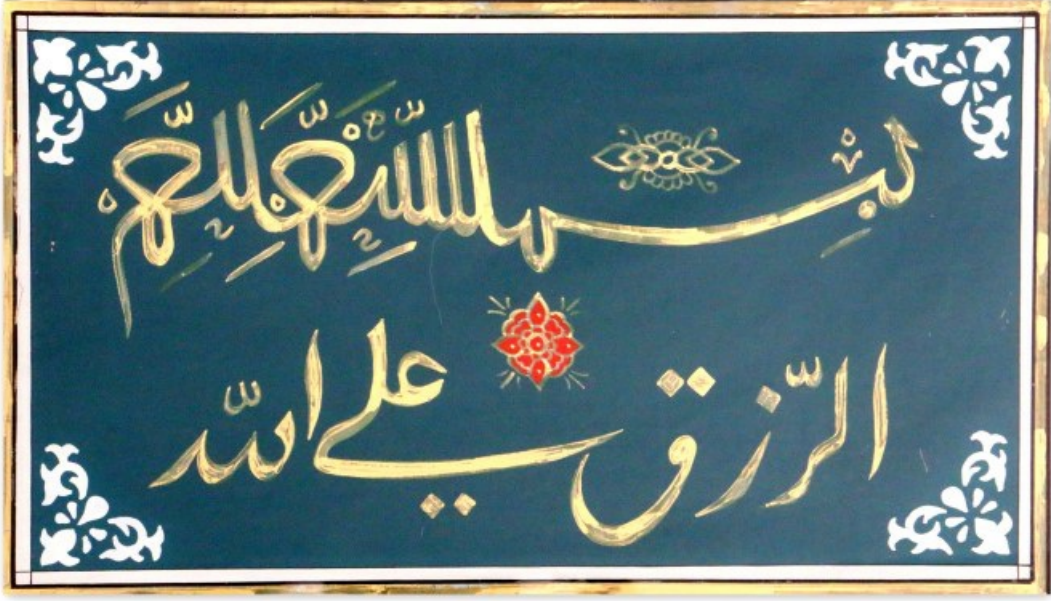 بسم الله الرحمن الرحيم
الرّزق علي الله